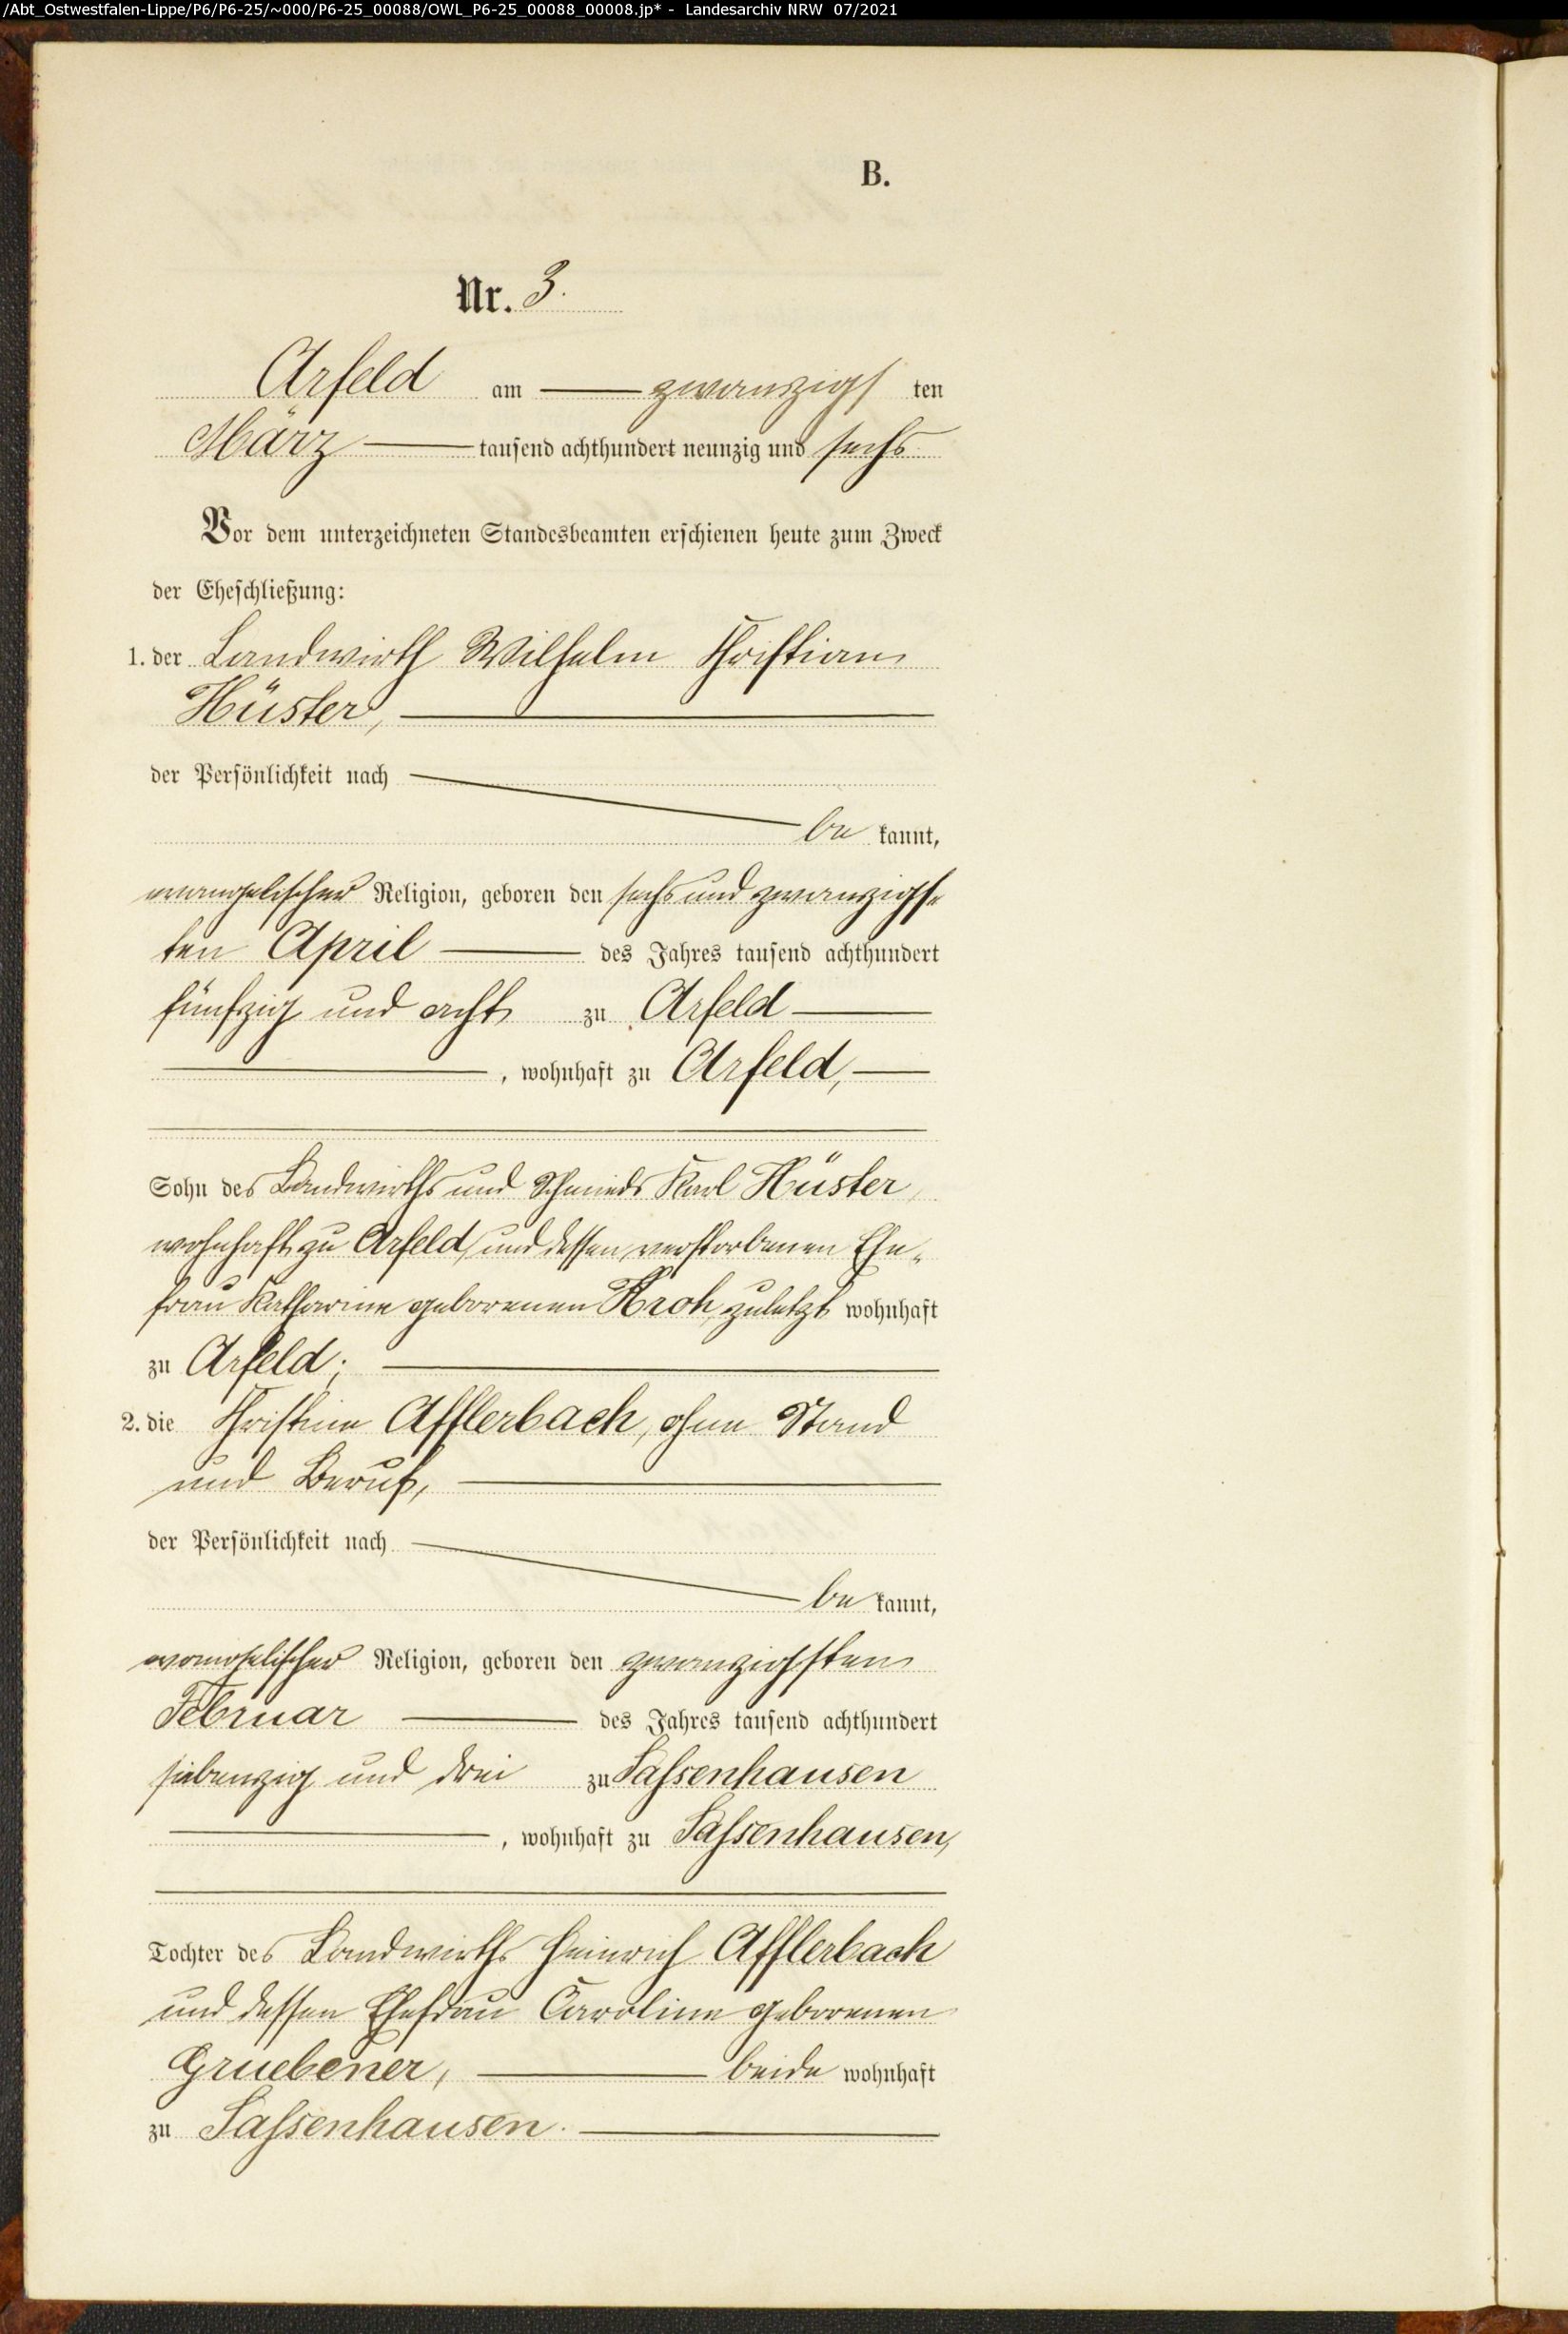 /Abt_Ostwestfalen-Lippe/P6/P6-25/~000/P6-25_00088/OWL_P6-25_00088_00008.jp* - Landesarchiv NRW 07/2021
B.
Nr. 3.
Arfeld am zwanzigs ten
März tausend achthundert neunzig und sechs
Vor dem unterzeichneten Standesbeamten erschienen heute zum Zweck
der Eheschließung:
1. der Landwirth Wilhelm Christian
Hüster,
der Persönlichkeit nach
be kannt,
evangelischer Religion, geboren den sechs und zwanzigs-
ten April des Jahres tausend achthundert
fünfzig und acht zu Arfeld
, wohnhaft zu Arfeld,
Sohn des Landwirths und Schmieds Karl Hüster,
wohnhaft zu Arfeld, und dessen verstorbenen Ehe-
frau Katharine geborenen Kroh, zuletzt wohnhaft
zu Arfeld;
2. die Christine Afflerbach, ohne Stand
und Beruf,
der Persönlichkeit nach
be kannt,
evangelischer Religion, geboren den zwanzigsten
Februar des Jahres tausend achthundert
siebenzig und drei zu Sassenhausen
, wohnhaft zu Sassenhausen,
Tochter des Landwirths Heinrich Afflerbach
und dessen Ehefrau Caroline geborenen
Gruebener, beide wohnhaft
zu Sassenhausen.